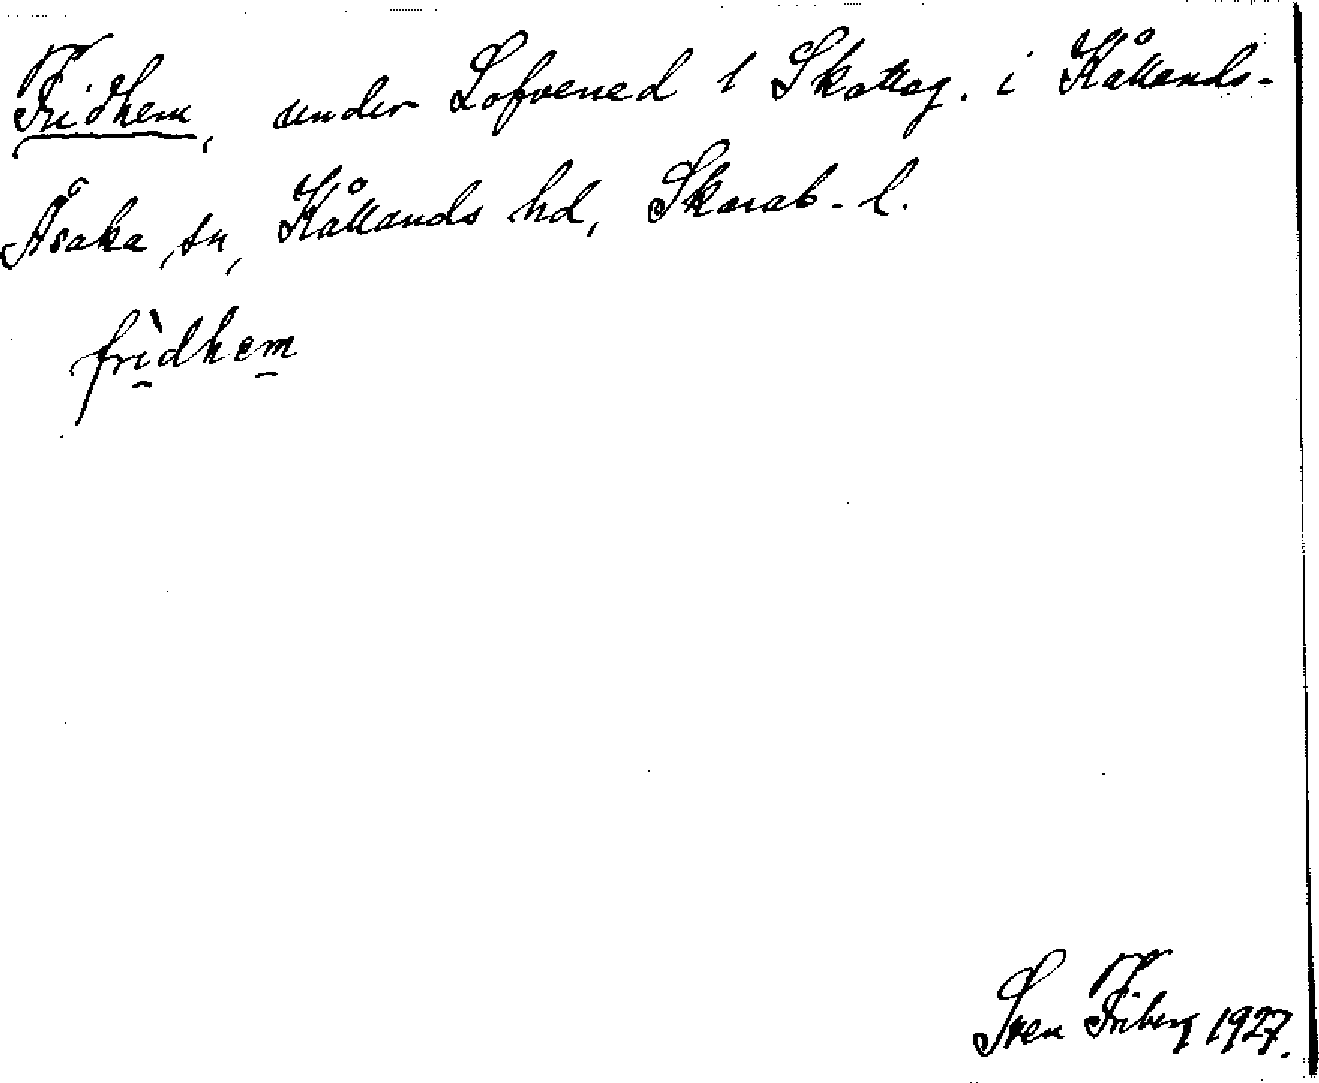 Fridhem, under Lofvened 1 Skattag. i Kållands-
Åsaka sn, Kållands hd, Skarab. l.
fridhem
Sven Friberg 1927.